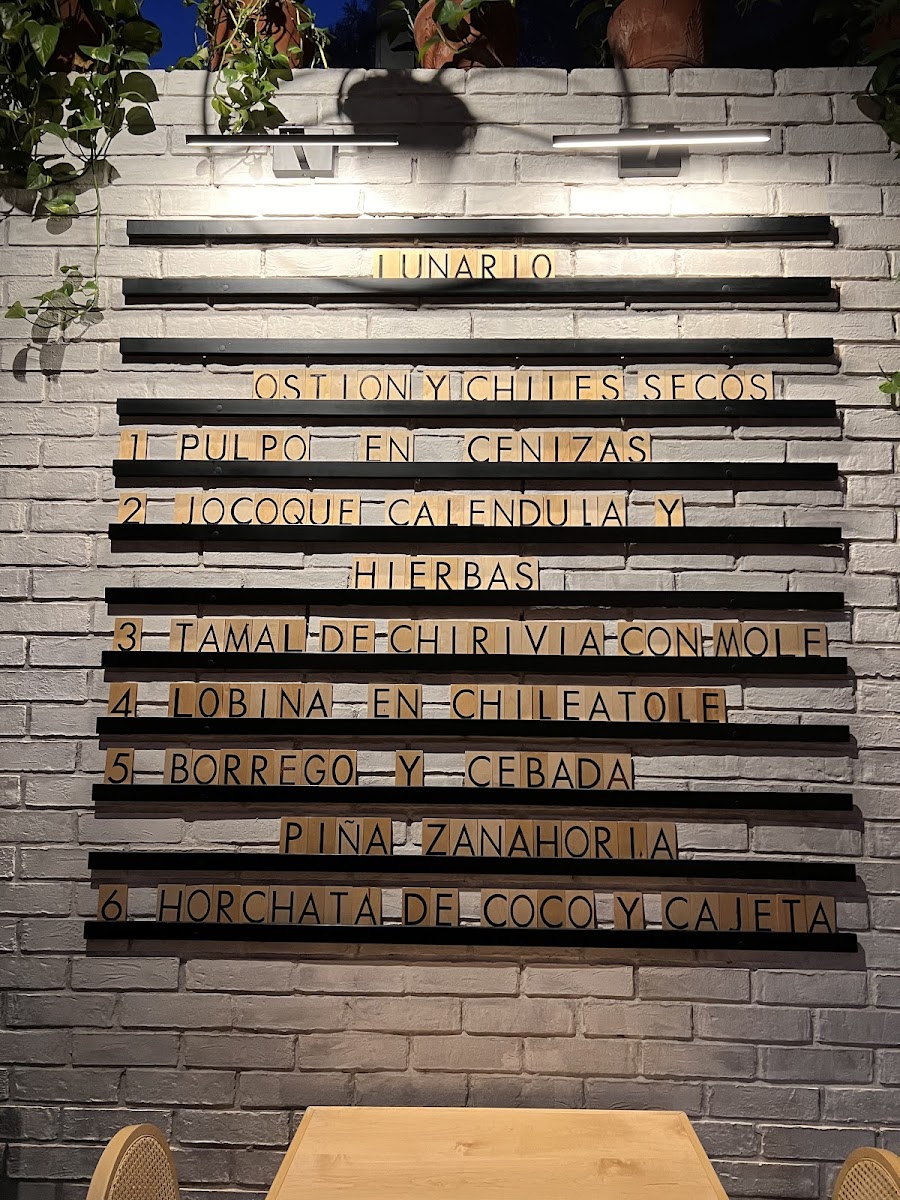 LUNARIO
OSTION Y CHILES SECOS
1 PULPO EN CENIZAS
2 JOCOQUE CALENDULA Y
HIERBAS
3 TAMAL DE CHIRIVIA CON MOLE
4 LOBINA EN CHILEATOLE
5 BORREGO Y CEBADA
PIÑA ZANAHORIA
6 HORCHATA DE COCO Y CAJETA